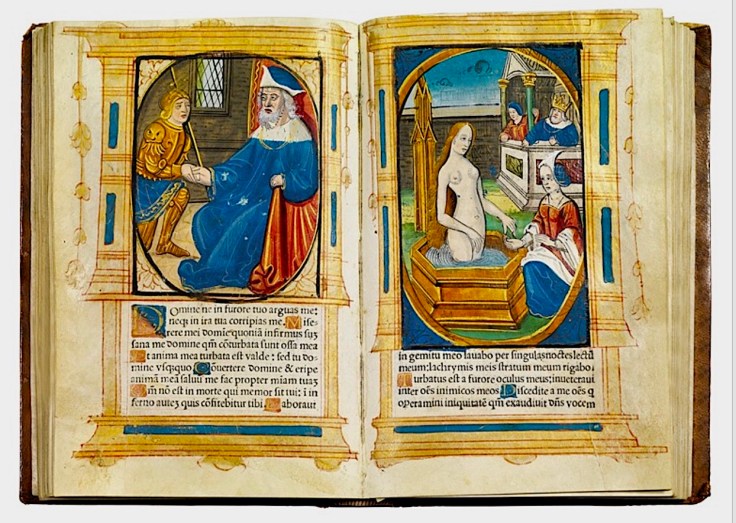 Domine ne in furore tuo arguas me:
neqꝫ in ira tua corripias me. Mise-
rere mei domĩe quoniã infirmus suꝫ
sana me domine qm̃ cõturbata sunt ossa mea
Et anima mea turbata est valde: sed tu do-
mine vsqꝫquo Cõuertere domine & eripe
animã meã saluũ me fac propter miam tuaꝫ
Qm̃ nõ est in morte qui memor sit tui: ĩ in
ferno auteꝫ quis cõfitebitur tibi Laboraui
in gemitu meo lauabo per singulas noctes lectũ
meum: lachrymis meis stratum meum rigabo.
Turbatus est a furore oculus meus: inueteraui
inter oẽs inimicos meos Discedite a me oẽs q
operamini iniquitatẽ qm̃ exaudiuit dñs vocem